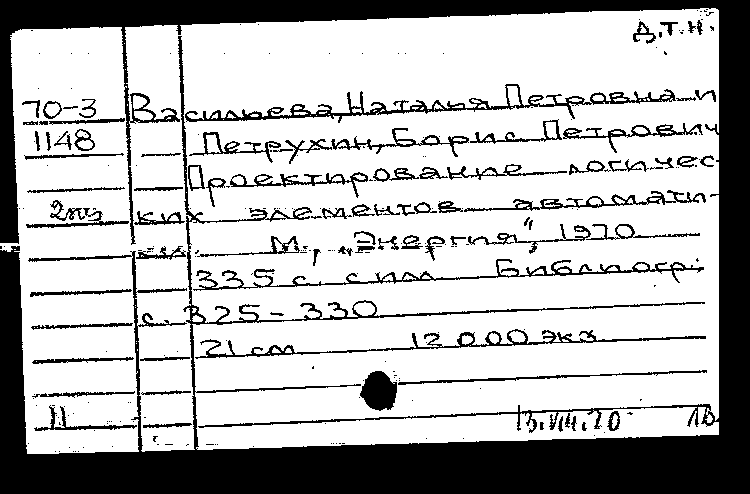 Д.Т.Н.
70-3 Васильева, Наталья Петровна и
1148 Петрухин, Борис Петрович
Проектирование логичес-
2экз ких элементов автомати-
ки. М., „Энергия“, 1970
335 с. с илл Библиогр.:
с. 325-330
21 см 12 000 экз
II 13.VIII.70 1В